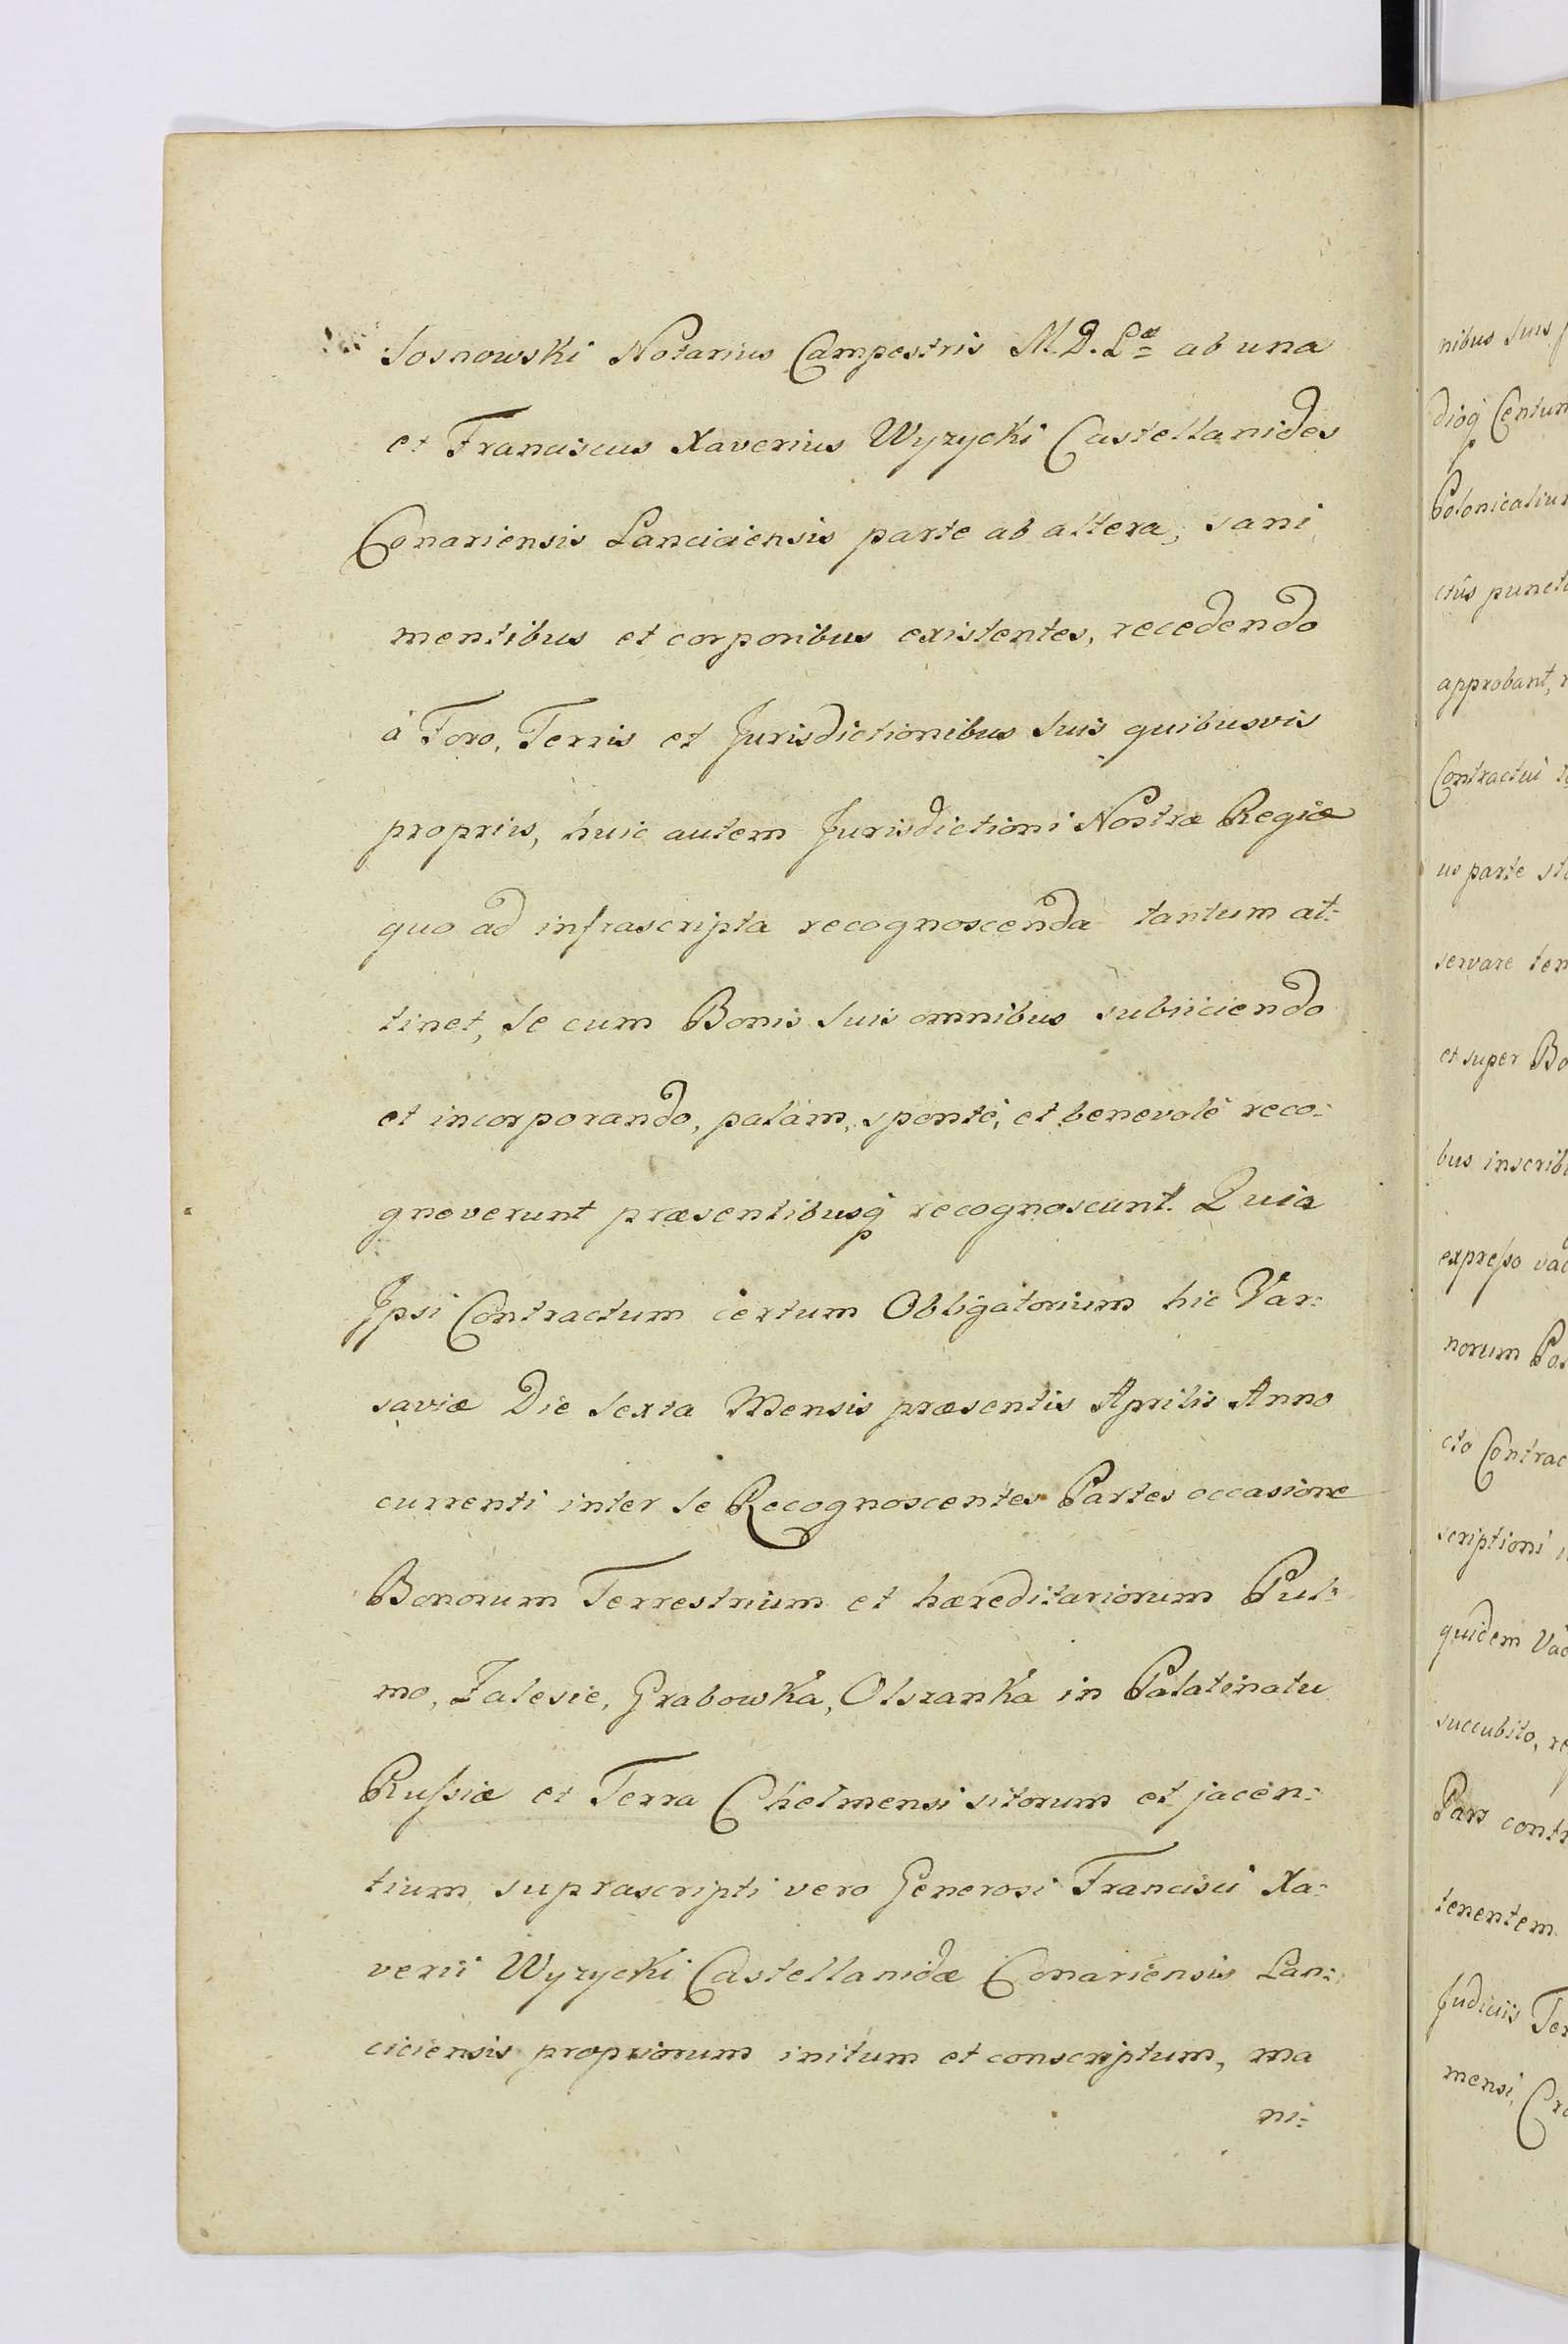 Sosnowski Notarius Campestris M. D. Læ ab una
et Franciscus Xaverius Wyzycki Castellanides
Conariensis Lanciciensis parte ab altera, sani
mentibus et corporibus existentes, recedendo
à Foro, Terris et Jurisdictionibus Suis quibusvis
propriis, huic autem Jurisdictioni Nostræ Regiæ
quo ad infrascripta recognoscenda tantum at=
tinet, Se cum Bonis Suis omnibus subiiciendo
et incorporando, palàm, spontè, et benevolè reco=
gnoverunt præsentibusq recognoscunt. Quia
Ipsi Contractum certum Obligatorium hic Var=
saviæ Die Sexta Mensis præsentis Aprilis Anno
currenti inter Se Recognoscentes Partes occasione
Bonorum Terrestrium et hæreditariorum Pul=
mo, Zalesie, Grabowka, Olszanka in Palatinatu
Russiæ et Terra Chelmensi sitorum et jacen=
tium, suprascripti vero Generosi Francisci Xa=
verii Wyzycki Castellanidæ Conariensis Lan=
ciciensis propriorum initum et conscriptum, ma
ni=
nibus Suis
dioq Centum
Polonicalium
ctûs puncta
approbant,
Contractui
us parte
servare
et super
bus
expresso
norum
cto Contrac
scriptioni
quidem
succubito,
Pars
tenentem
Judiciis
mensi,